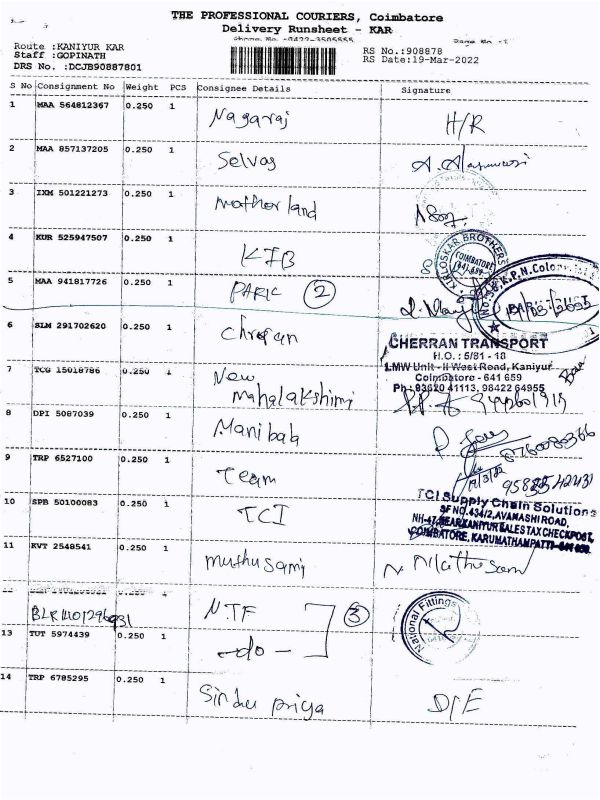 THE PROFESSIONAL COURIERS, Coimbatore
Delivery Runsheet - KAR
Route :KANIYUR KAR
Staff :GOPINATH
DRS No. :DCJB90887801
RS No.:908878
RS Date:19-Mar-2022
S No Consignment No Weight PCS Consignee Details Signature
1 MAA 564812367 0.250 1 Nagaraj H/R
2 MAA 857137205 0.250 1 Selvas
3 IXM 501221273 0.250 1 motherland
4 KUR 525947507 0.250 1 KIB
KIRLOSKAR BROTHERS
COIMBATORE
641 659
5 MAA 941817726 0.250 1 PARK 2
K.P.N.Colony
6 SLM 291702620 0.250 1 Cherran
CHERRAN TRANSPORT
H.O. : 5/81 - 18
LMW Unit - II West Road, Kaniyur
Coimbatore - 641 659
Ph : 93620 41113, 98422 64955
7 TCG 15018786 0.250 1 New
mahalakshimi
8 DPI 5087039 0.250 1 Manibab
9 TRP 6527100 0.250 1 Team
10 SPB 50100083 0.250 1 TCI
TCI Supply Chain Solutions
SF NO.434/2, AVAMASHI ROAD,
NH-47, NEAR KANIYUR SALES TAX CHECKPOST,
COIMBATORE, KARUMATHAMPATTI - 641 659.
11 KVT 2548541 0.250 1 muthusami
N.TF 3
National Fittings
13 TUT 5974439 0.250 1 -do-
14 TRP 6785295 0.250 1 Sindu priya D/E